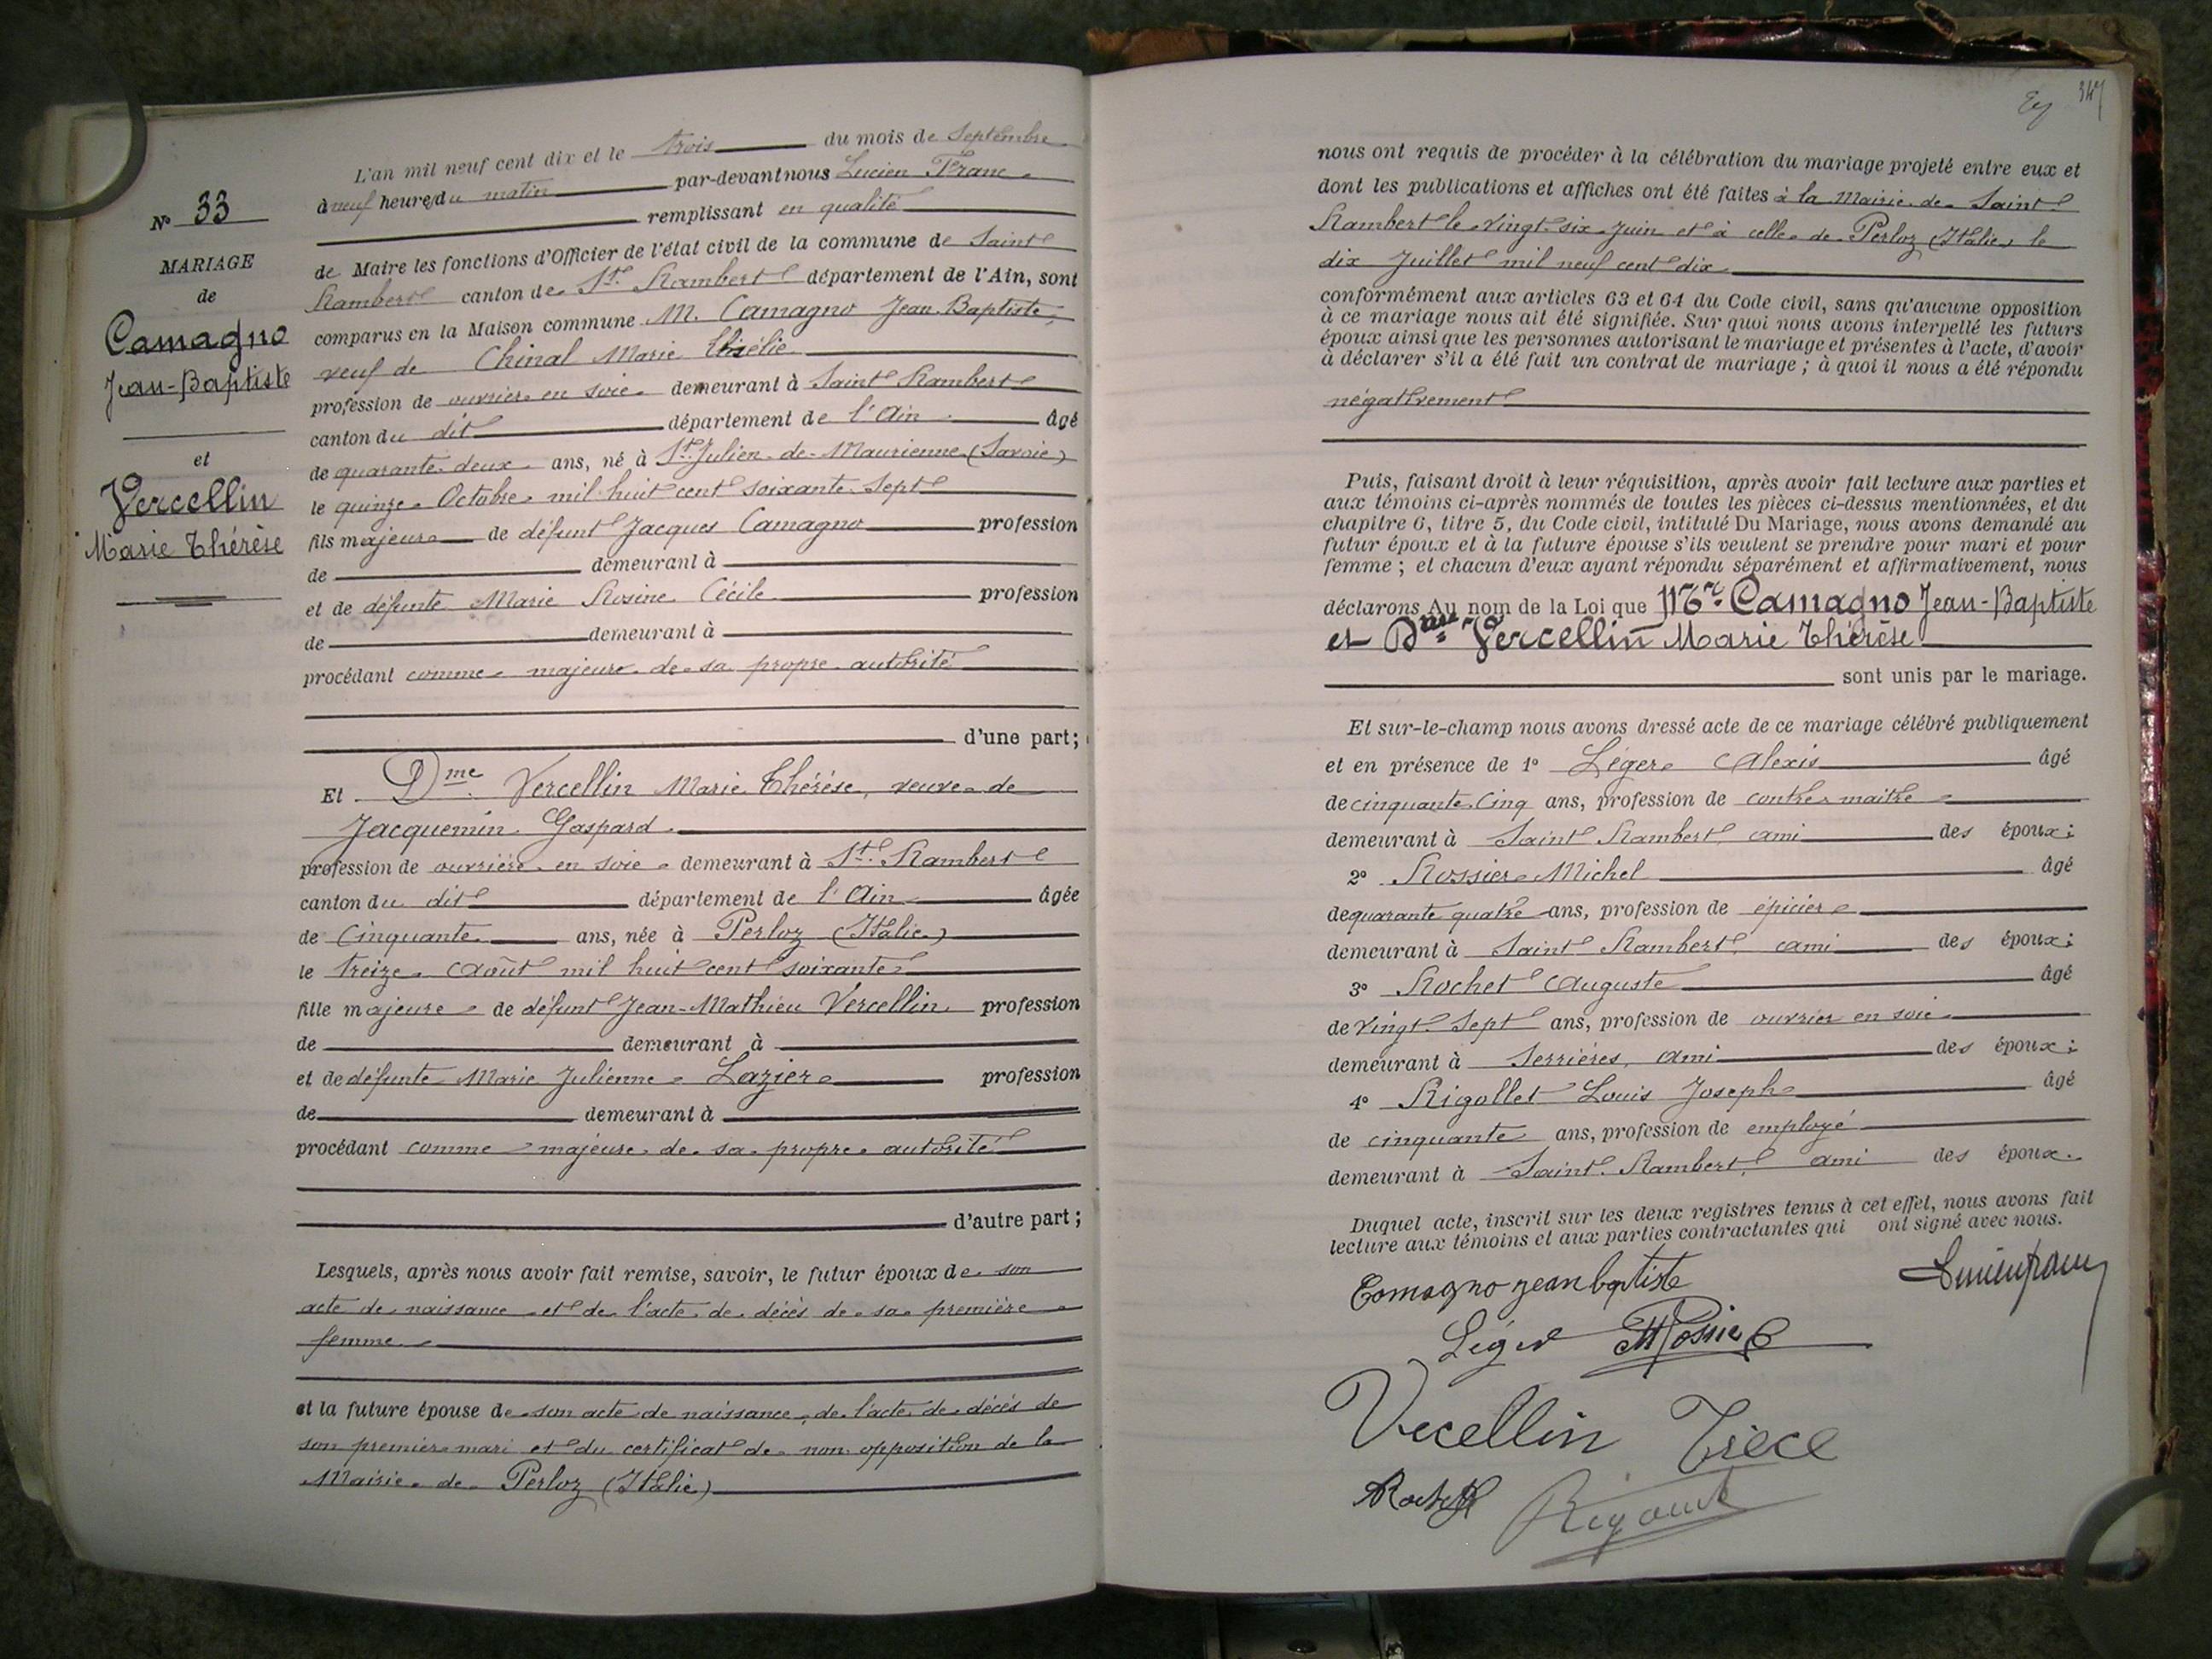 N° 33
MARIAGE
de
Camagno
Jean-Baptiste
et
Vercellin
Marie Thérèse
L'an mil neuf cent dix et le trois du mois de Septembre
à neuf heures du matin par-devant nous Lucien Franc
remplissant en qualité
de Maire les fonctions d'Officier de l'état civil de la commune de Saint
Rambert canton de St. Rambert département de l'Ain, sont
comparus en la Maison commune M. Camagno Jean Baptiste,
veuf de Chinal Marie
profession de ouvrier en soie demeurant à Saint Rambert
canton du dit département de l'Ain âgé
de quarante deux ans, né à St. Julien-de-Maurienne (Savoie)
le quinze Octobre mil huit cent soixante sept
fils majeur de défunt Jacques Camagno profession
de demeurant à
et de défunte Marie Rosine Cécile profession
de demeurant à
procédant comme majeur de sa propre autorité
d'une part;
Et Dme Vercellin Marie Thérèse, veuve de
Jacquemin Gaspard
profession de ouvrière en soie demeurant à St. Rambert
canton du dit département de l'Ain âgée
de Cinquante ans, née à Perloz (Italie)
le treize Août mil huit cent soixante
fille majeure de défunt Jean-Mathieu Vercellin profession
de demeurant à
et de défunte Marie Julienne Lazier profession
de demeurant à
procédant comme majeure de sa propre autorité
d'autre part;
Lesquels, après nous avoir fait remise, savoir, le futur époux de son
acte de naissance et de l'acte de décès de sa première
femme
et la future épouse de son acte de naissance, de l'acte de décès de
son premier mari et du certificat de non opposition de la
Mairie de Perloz (Italie)
347
nous ont requis de procéder à la célébration du mariage projeté entre eux et
dont les publications et affiches ont été faites à la Mairie de Saint
Rambert le vingt-six Juin et à celle de Perloz (Italie) le
dix Juillet mil neuf cent dix
conformément aux articles 63 et 64 du Code civil, sans qu'aucune opposition
à ce mariage nous ait été signifiée. Sur quoi nous avons interpellé les futurs
époux ainsi que les personnes autorisant le mariage et présentes à l'acte, d'avoir
à déclarer s'il a été fait un contrat de mariage; à quoi il nous a été répondu
négativement
Puis, faisant droit à leur réquisition, après avoir fait lecture aux parties et
aux témoins ci-après nommés de toutes les pièces ci-dessus mentionnées, et du
chapitre 6, titre 5, du Code civil, intitulé Du Mariage, nous avons demandé au
futur époux et à la future épouse s'ils veulent se prendre pour mari et pour
femme; et chacun d'eux ayant répondu séparément et affirmativement, nous
déclarons Au nom de la Loi que Mr. Camagno Jean-Baptiste
et Dme Vercellin Marie Thérèse
sont unis par le mariage.
Et sur-le-champ nous avons dressé acte de ce mariage célébré publiquement
et en présence de 1° Léger Alexis âgé
de cinquante cinq ans, profession de contre-maître
demeurant à Saint Rambert, ami des époux;
2° Rossier Michel âgé
de quarante quatre ans, profession de épicier
demeurant à Saint Rambert, ami des époux;
3° Rochet Auguste âgé
de vingt-sept ans, profession de ouvrier en soie
demeurant à Serrières, ami des époux;
4° Rigollet Louis Joseph âgé
de cinquante ans, profession de employé
demeurant à Saint Rambert, ami des époux.
Duquel acte, inscrit sur les deux registres tenus à cet effet, nous avons fait
lecture aux témoins et aux parties contractantes qui ont signé avec nous.
Camagno jean batiste
Léger MRossier
Vecellin Trece
Rochet